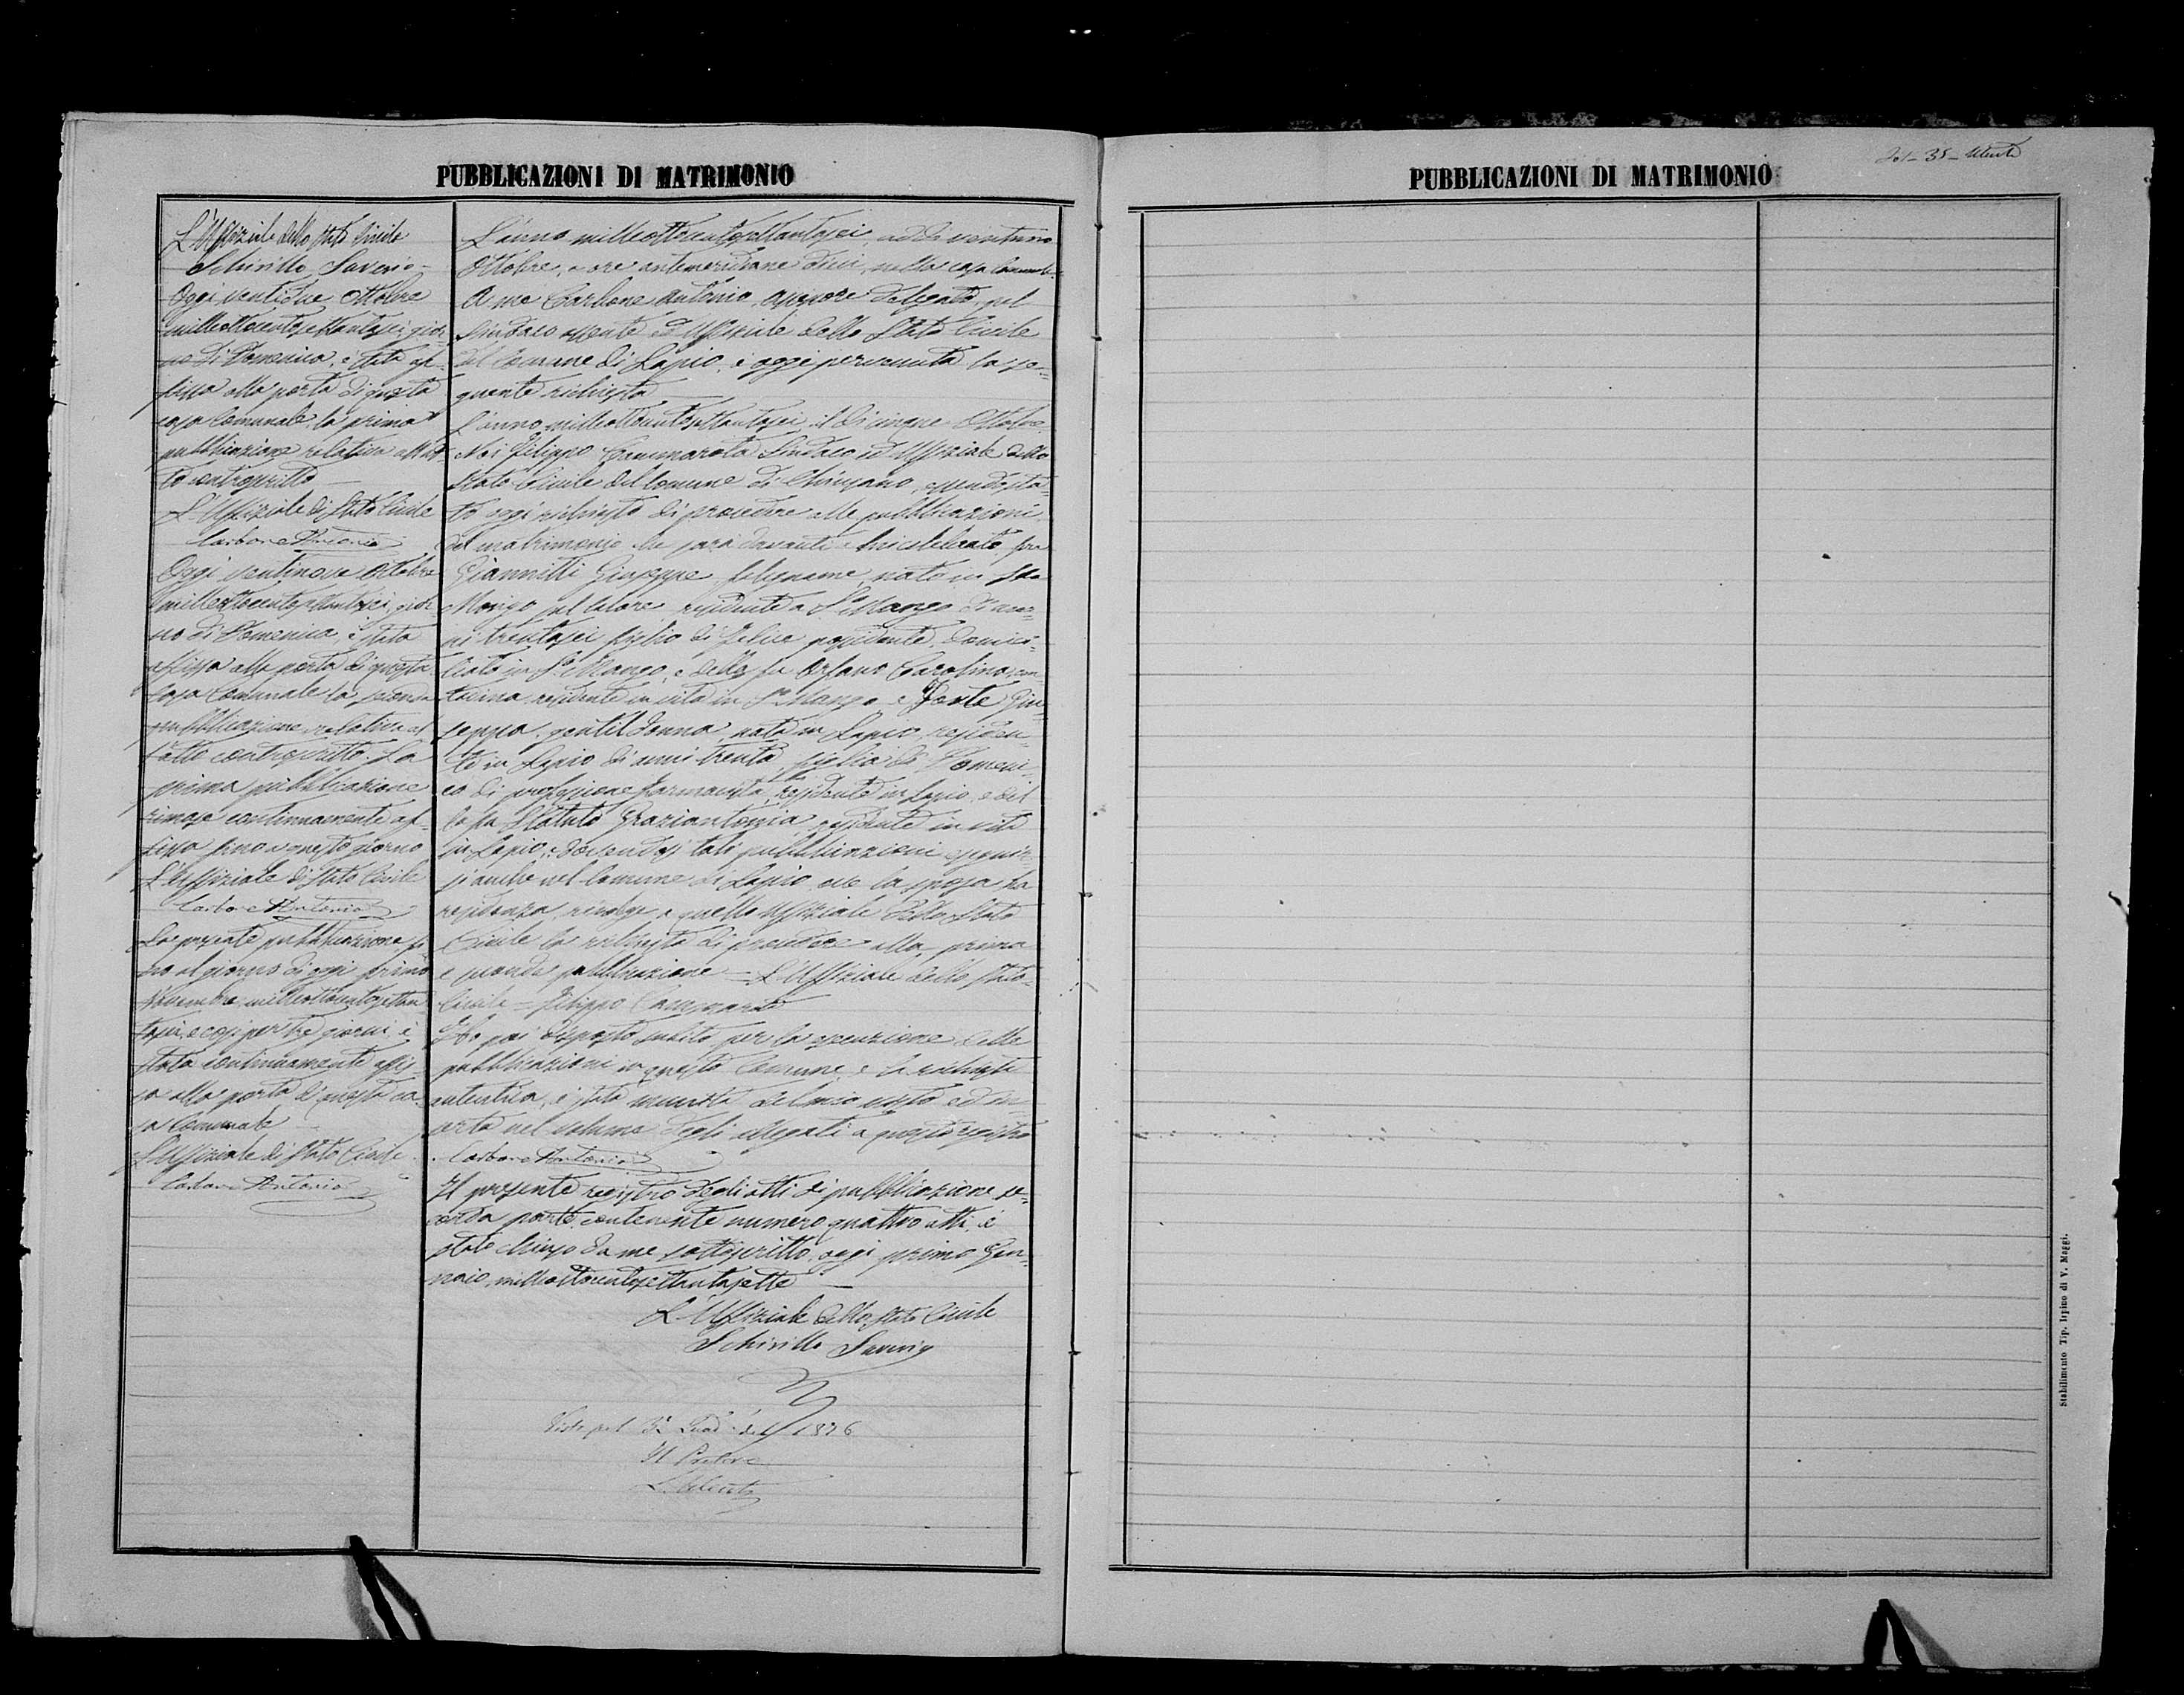 PUBBLICAZIONI DI MATRIMONIO
L'Uffiziale dello Stato Civile
Schirillo Saverio
Oggi ventidue Ottobre
milleottocentosettantasei gior-
no di Domenica, è stata af-
fissa alla porta di questa
casa Comunale la prima
pubblicazione relativa all'at-
to controscritto
L'Uffiziale di Stato Civile
Carbone Antonio
Oggi ventinove Ottobre
milleottocentosettantasei, gior-
no di Domenica è stata
affissa alla porta di questa
Casa Comunale la seconda
pubblicazione relativa al-
l'atto controscritto. La
prima pubblicazione
rimase continuamente af-
fissa fino a questo giorno
L'Uffiziale di Stato Civile
Carbone Antonio
La presente pubblicazione fi-
no al giorno di oggi primo
Novembre milleottocentosettan-
tasei, e così per tre giorni è
stata continuamente affis-
sa alla porta di questa ca-
sa Comunale
L'Uffiziale di Stato Civile
Carbone Antonio
L'anno milleottocentosettantasei, addì ventuno
Ottobre, a ore antemeridiane dieci, nella casa Comunale.
A me Carbone Antonio, assessore delegato, pel
Sindaco assente ed Uffiziale dello Stato Civile
del Comune di Lapio, è oggi pervenuta la se-
guente richiesta
L'anno milleottocentosettantasei, il dì cinque Ottobre.
Noi Filippo Cammarota Sindaco ed Uffiziale dello
Stato Civile del Comune di Chiusano, essendo sta-
to oggi richiesto di procedere alle pubblicazioni
del matrimonio che sarà davanti a Noi celebrato fra
Giannitti Giuseppe, falegname, nato in Sto
Mango sul Calore residente a Sto Mango di an-
ni trentasei figlio di Felice possidente, domici-
liato in Sto Mango, e della fu Orfano Carolina, con-
tadina residente in vita in Sto Mango e Forte Giu-
seppa, gentildonna, nata in Lapio, residen-
te in Lapio di anni trenta, figlia di Domeni-
co di professione farmacista, residente in Lapio, e del-
la fu Statuto Graziantonia residente in vita
in Lapio; e dovendosi tali pubblicazioni eseguir-
si anche nel Comune di Lapio ove la sposa ha
residenza, rivolge a quello Uffiziale dello Stato
Civile la richiesta di procedere alla prima
e seconda pubblicazione = L'Uffiziale dello Stato
Civile = Filippo Cammarota
Ho poi disposto subito per la esecuzione delle
pubblicazioni in questo Comune, e la richiesta
autentica, è stata munita del mio visto ed in-
serta nel volume degli allegati a questo registro
Carbone Antonio
Il presente registro degli atti di pubblicazione se-
conda parte contenente numero quattro atti, è
stato chiuso da me sottoscritto oggi primo Gen-
naio milleottocentosettantasette
L'Uffiziale dello Stato Civile
Schirillo Saverio
Visto pel 3° Quad. del 1876
Il Pretore
PUBBLICAZIONI DI MATRIMONIO
Stabilimento Tip. Irpino di V. Maggi.